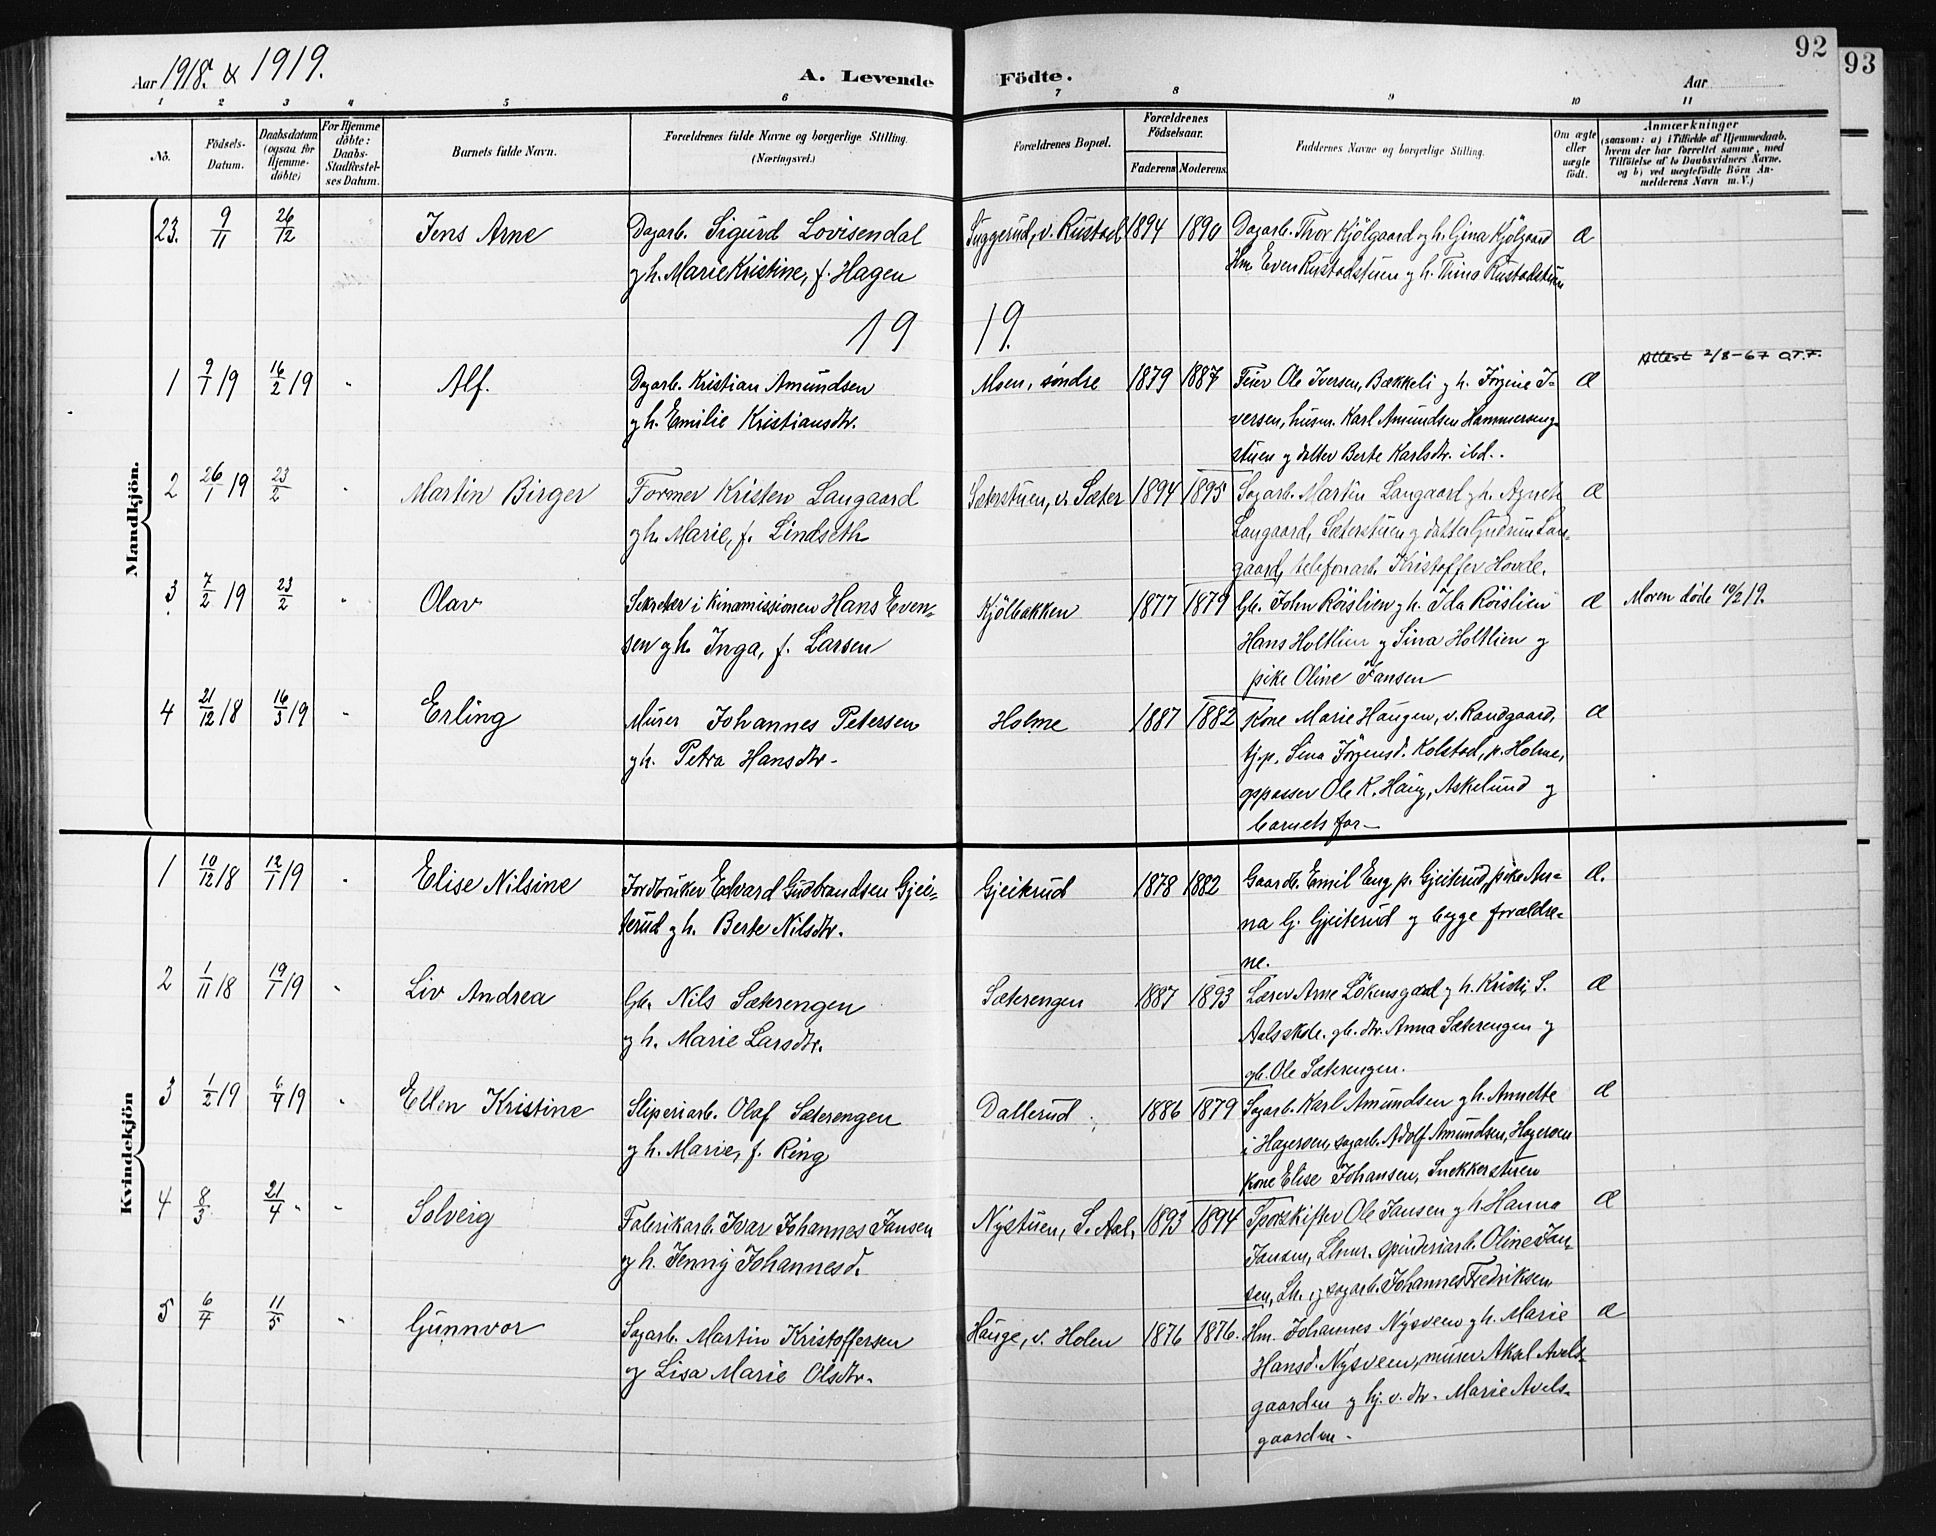 92
93
Aar 1918. & 1919.
A. Levende Födte.
Aar
1 2 3 4 5 6 7 8 9 10 11
No.
Födsels-Datum.
Daabsdatum (ogsaa for Hjemmedöbte)
For Hjemmedöbte: Daabs-Stadfæstelses Datum.
Barnets fulde Navn.
Forældrenes fulde Navne og borgerlige Stilling.
(Næringsvei.)
Forældrenes Bopæl.
Forældrenes Födselsaar.
Faderens Moderens
Faddernes Navne og borgerlige Stilling.
Om ægte eller uægte födt.
Anmærkninger
(saasom: a) i Tilfælde af Hjemmedaab, hvem der har forrettet samme, med Tilföielse af to Daabsvidners Navne, og b) ved uægtefödte Börn Anmelderens Navn m. V.)
Mandkjön.
23. 9/11 26/12 Jens Arne
Dagarb. Sigurd Lovisendal
og h. Marie Kristine, f. Hagen
Suggerud, v. Rustad 1894 1890
Dagarb. Thor Kjölgaard og h. Gina Kjölgaard
Hm. Even Rustadstuen og h. Thina Rustadstuen
Æ
19 19.
1 9/1 19 16/2 19 " Alf.
Dagarb. Kristian Amundsen
og h. Emilie Kristiansdtr.
Moen, söndre 1879 1887
Feier Ole Iversen, Bækkeli og h. Jörgine I-
versen, husm. Karl Amundsen Hammereng-
stuen og datter Berte Karlsdtr. ibd..
Æ
Attest 2/8-67 O.T.F.
2 26/1 19 23/2 " Martin Birger
Former Kristen Langaard
og h. Marie, f. Lindseth
Sæterstuen, v. Sæter 1894 1895
Sagarb. Martin Langaard og h. Agnete
Langaard, Sæterstuen og datter Gudrun Lan-
gaard, telefonarb. Kristoffer Hovde.
Æ
3 7/2 19 23/2 " Olav
Sekretær i Kinamissionen Hans Even-
sen og h. Inga, f. Larsen
Kjölbakken 1877 1879
Gb. John Röislien og h. Ida Röislien
Hans Holtlien og Sina Holtlien og
pike Oline Jansen
Æ
Moren döde 10/2 19.
4 21/12 18 16/3 19 " Erling
Murer Johannes Petersen
og h. Petra Hansdtr.
Holme 1887 1882
Kone Marie Haugen, v. Randgaard,
tj.p. Sina Jörgensd. Kolstad, p. Holme,
oppasser Ole K. Haug, Askelund og
barnets far
Æ
Kvindekjön
1 10/12 18 12/1 19 " Elise Nilsine
Jordbruker Edvard Gudbrandsen Gjei-
terud og h. Berte Nilsdtr.
Gjeiterud 1878 1882
Gaardb. Emil Eng p. Gjeiterud, pike An-
na G. Gjeiterud og begge forældre-
ne.
Æ.
2 1/11 18 19/1 19 " Liv Andrea
Gb. Nils Sæterengen
og h. Marie Larsdtr.
Sæterengen 1887 1893
Lærer Arne Lökensgard og h. Kristi, S.
Aals skole. gb. dtr. Anna Sæterengen og
gb. Ole Sæterengen.
Æ
3 1/2 19 6/4 19 " Ellen Kristine
Sliperiarb. Olaf Sæterengen
og h. Marie, f. Ring
Dallerud 1886 1879
Sagarb. Karl Amundsen og h. Annette
i Hageroen, sagarb. Adolf Amundsen, Hageroen
kone Elise Johansen, Snekkerstuen
Æ
4 8/3 21/4 " " Solveig
Fabrikarb. Ivar Johannes Jansen
og h. Jenny Johannesd.
Nystuen, S. Aal. 1893 1894
Sporskifter Ole Jansen og h. Hanna
Jansen, Lhmr. spinderiarb. Oline Jan-
sen, Lh. og sagarb. Johannes Fredriksen
Æ
5 6/4 11/5 " Gunnvor
Sagarb. Martin Kristoffersen
og Lisa Marie Olsdtr.
Hauge, v. Holen 1876 1876.
Hm. Johannes Nysveen og h. Marie
Hansd. Nysveen, murer Aksel Avels-
gaarden og hj. v. dtr. Marie Avels-
gaarden.
Æ